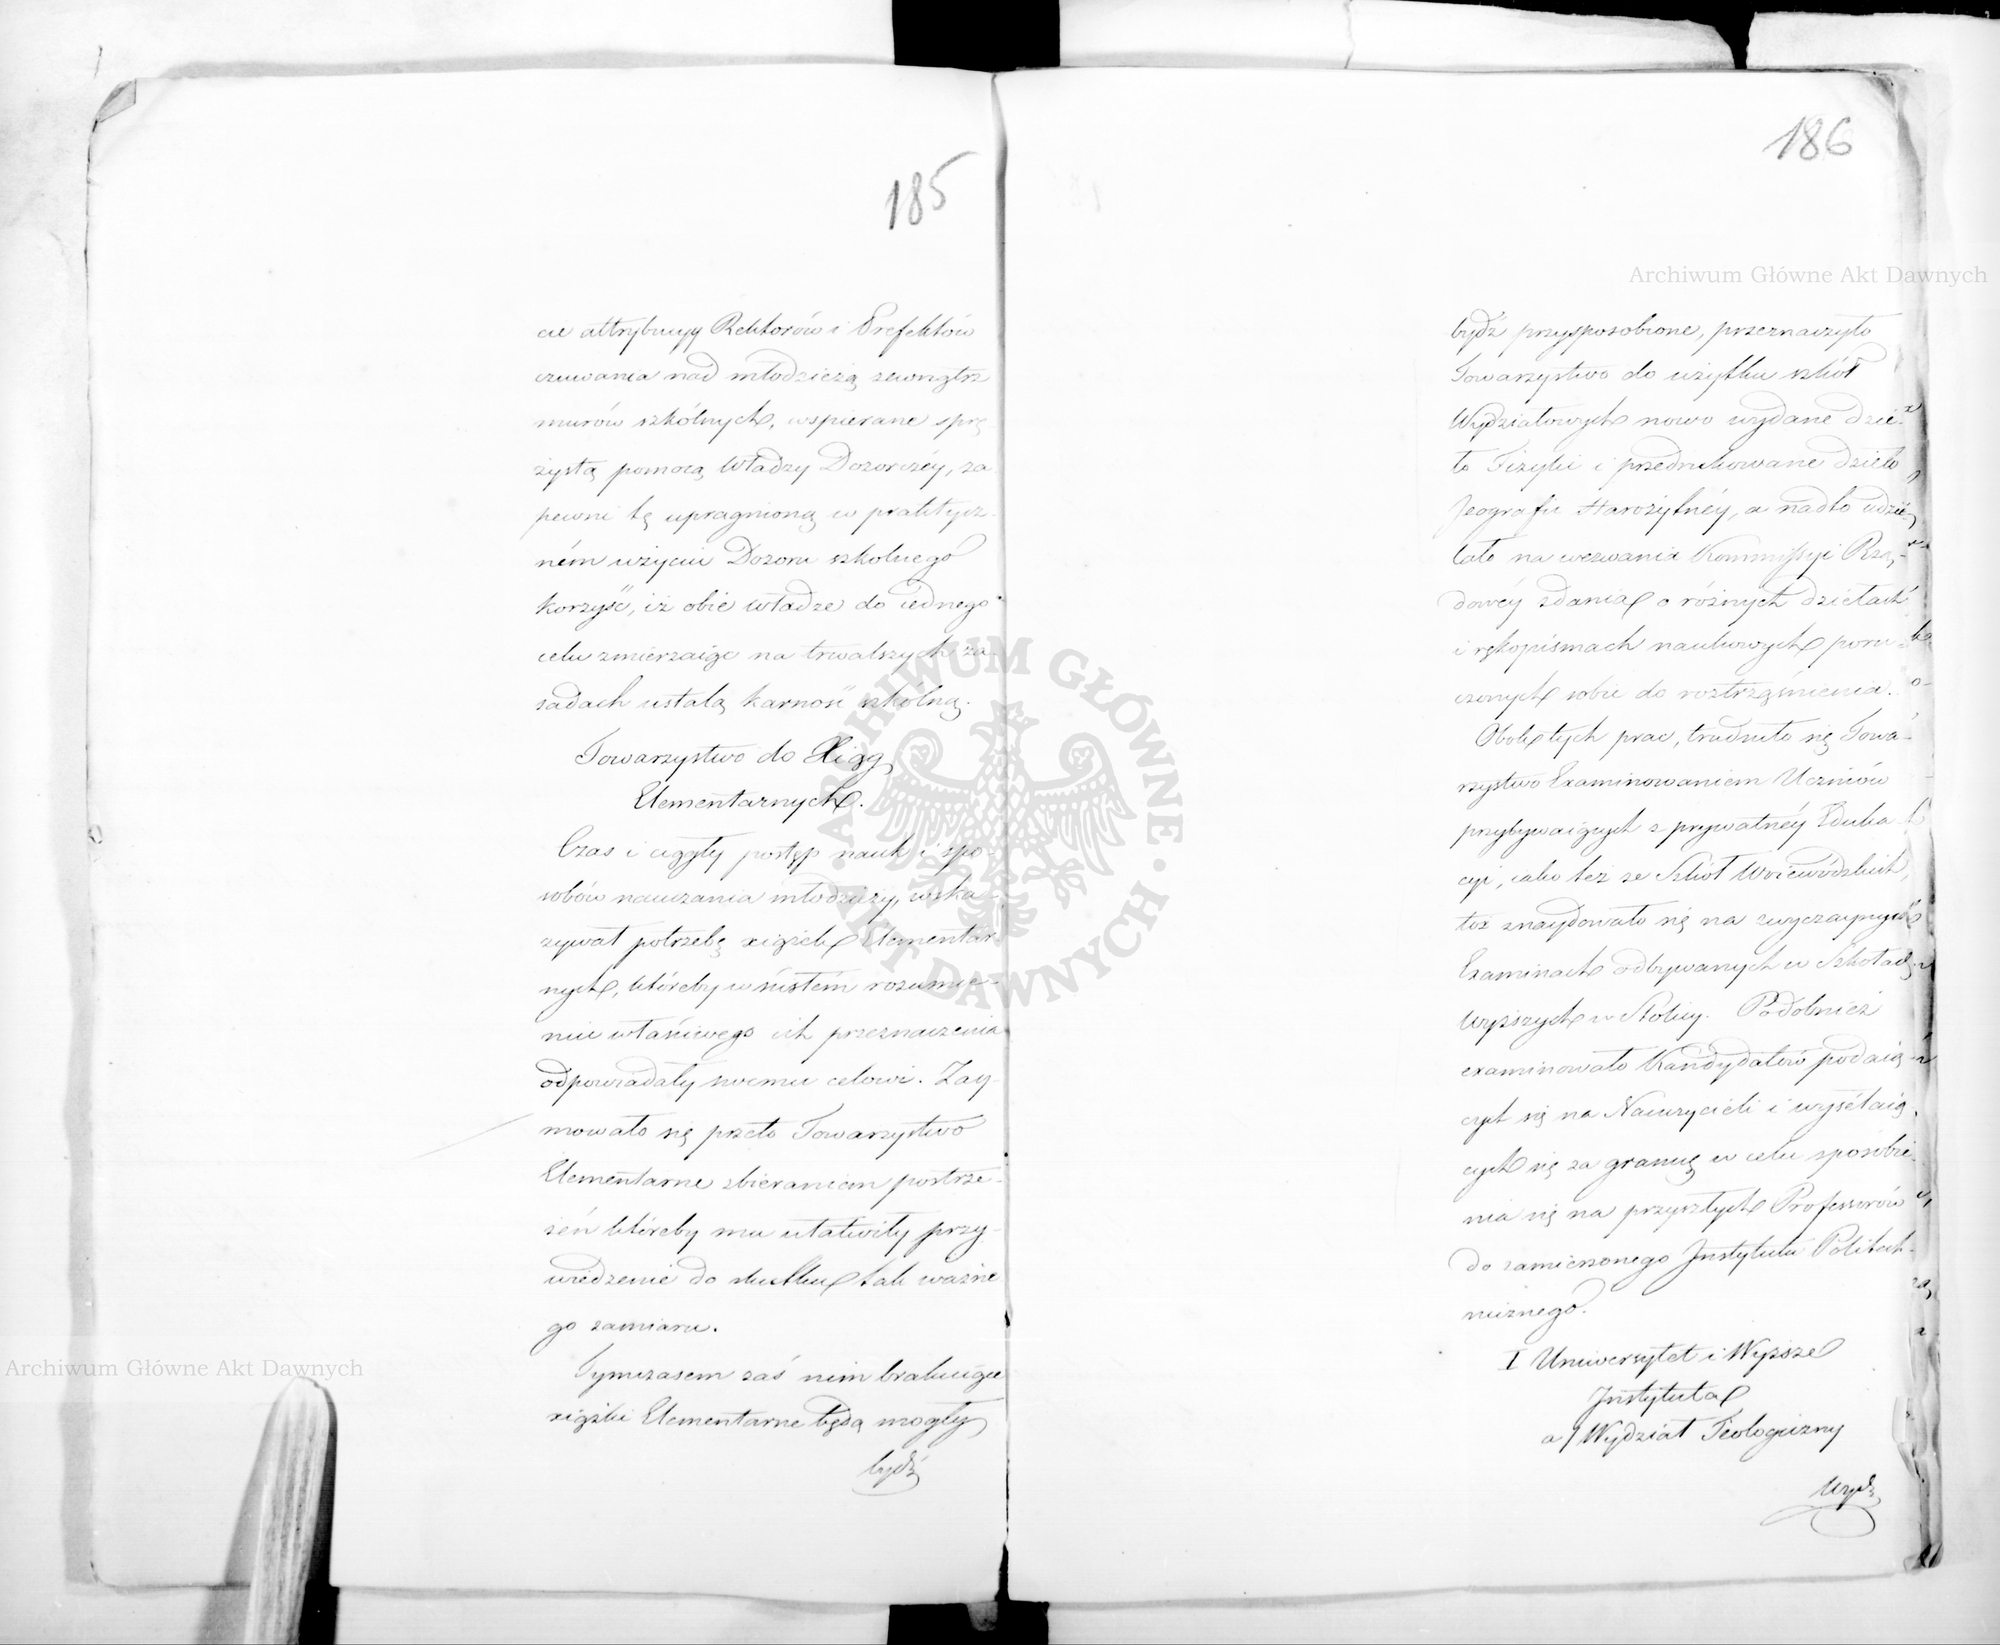 185
ce attrybucyą Rektorów i Prefektów
czuwania nad młodzieżą zewnątrz
murów szkólnych, wspierane sprę-
żystą pomocą Władzy Dozorczéy, za-
pewni tę upragnioną w praktycz-
ném użyciu Dozoru szkolnego
korzyść, iż obie władze do iednego
celu zmierzaiąc na trwalszych za-
sadach ustalą karność szkólną.
Towarzystwo do Xiąg
Elementarnych.
Czas i ciągły postęp nauk i spo-
sobów nauczania młodzieży, wska-
zywał potrzebę xiążek Elementar-
nych, któreby w ścisłém rozumie-
niu właściwego ich przeznaczenia
odpowiadały swemu celowi. Zay-
mowało się przeto Towarzystwo
Elementarne zbieraniem postrze-
żeń któreby mu ułatwiły przy-
wiedzenie do skutku tak ważne-
go zamiaru.
Tymczasem zaś nim brakuiące
xiążki Elementarne będą mogły
bydź
186
bydź przysposobione, przeznaczyło
Towarzystwo do użytku szkół
Wydziałowych nowo wydane dzie-
ło Fizyki i przedrukowane dzieło
Jeografii Starożytnéy, a nadto udzie-
lało na wezwania Kommissyi Rzą-
dowéy zdania o różnych dziełach
i rękopismach naukowych poru-
czonych sobie do roztrząśnienia.
Obok tych prac, trudniło się Towa-
rzystwo Examinowaniem Uczniów
przybywaiących z prywatnéy Eduka-
cyi, iako też ze Szkół Woiewódzkich,
toż znaydowało się na zwyczaynych
Examinach odbywanych w Szkołach
wyższych w Stolicy. Podobnież
examinowało Kandydatów podaią-
cych się na Nauczycieli i wysełaią-
cych się za granicę w celu sposobie-
nia się na przyszłych Professorów
do zamierzonego Instytutu Politech-
nicznego.
I Uniwersytet i Wyższe
Instytuta
a/ Wydział Teologiczny
Wydz
Archiwum Główne Akt Dawnych
Archiwum Główne Akt Dawnych
ARCHIWUM GŁÓWNE AKT DAWNYCH